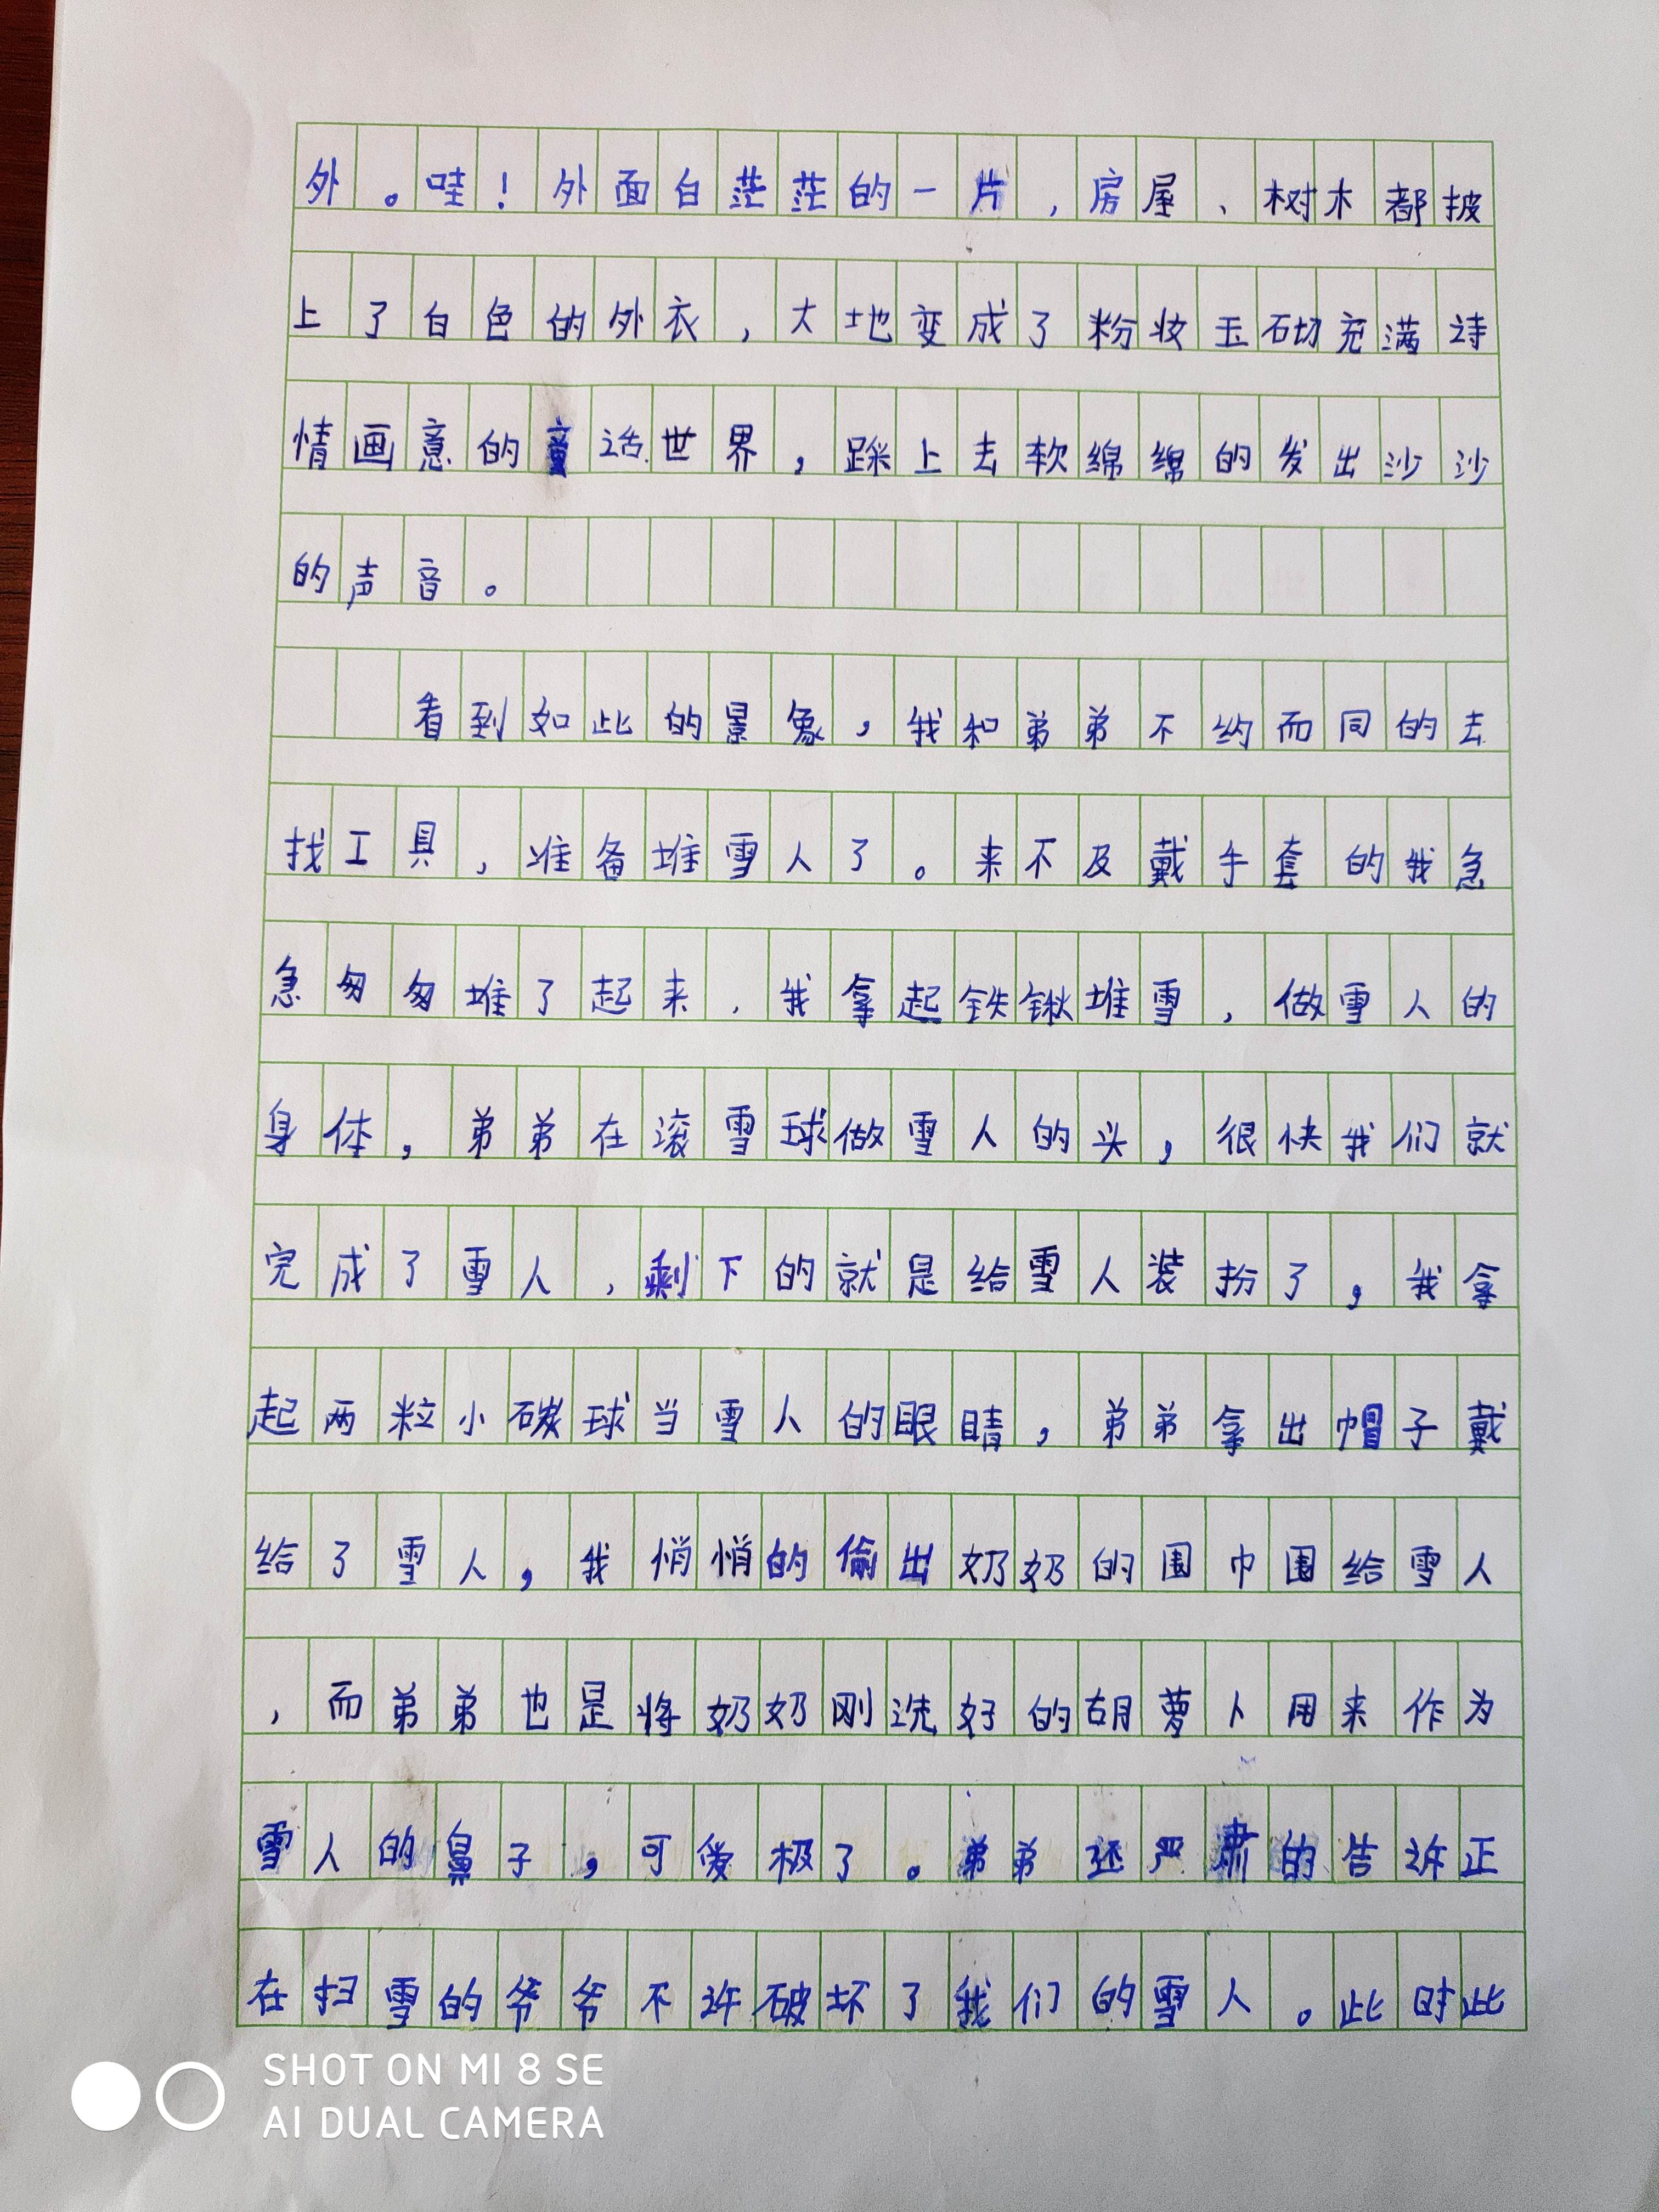 外。哇！外面白茫茫的一片，房屋、树木都披
上了白色的外衣，大地变成了粉妆玉砌充满诗
情画意的童话世界，踩上去软绵绵的发出沙沙
的声音。
看到如此的景象，我和弟弟不约而同的去
找工具，准备堆雪人了。来不及戴手套的我急
急匆匆堆了起来，我拿起铁锹堆雪，做雪人的
身体，弟弟在滚雪球做雪人的头，很快我们就
完成了雪人，剩下的就是给雪人装扮了，我拿
起两粒小碳球当雪人的眼睛，弟弟拿出帽子戴
给了雪人，我悄悄的偷出奶奶的围巾围给雪人
，而弟弟也是将奶奶刚洗好的胡萝卜用来作为
雪人的鼻子，可爱极了。弟弟还严肃的告诉正
在扫雪的爷爷不许破坏了我们的雪人。此时此
SHOT ON MI 8 SE
AI DUAL CAMERA